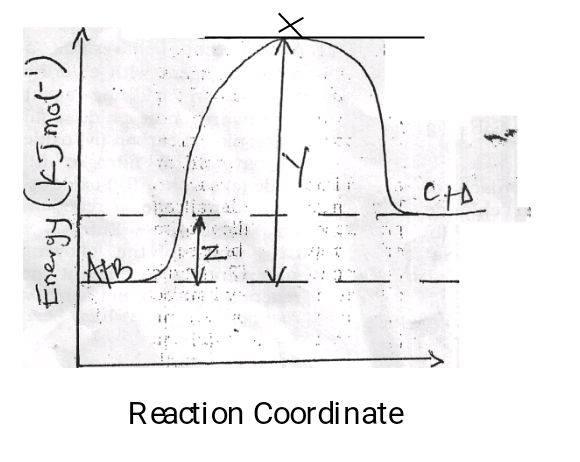 X
Energy (kJ mol⁻¹)
Y
C+D
Z
A+B
Reaction Coordinate